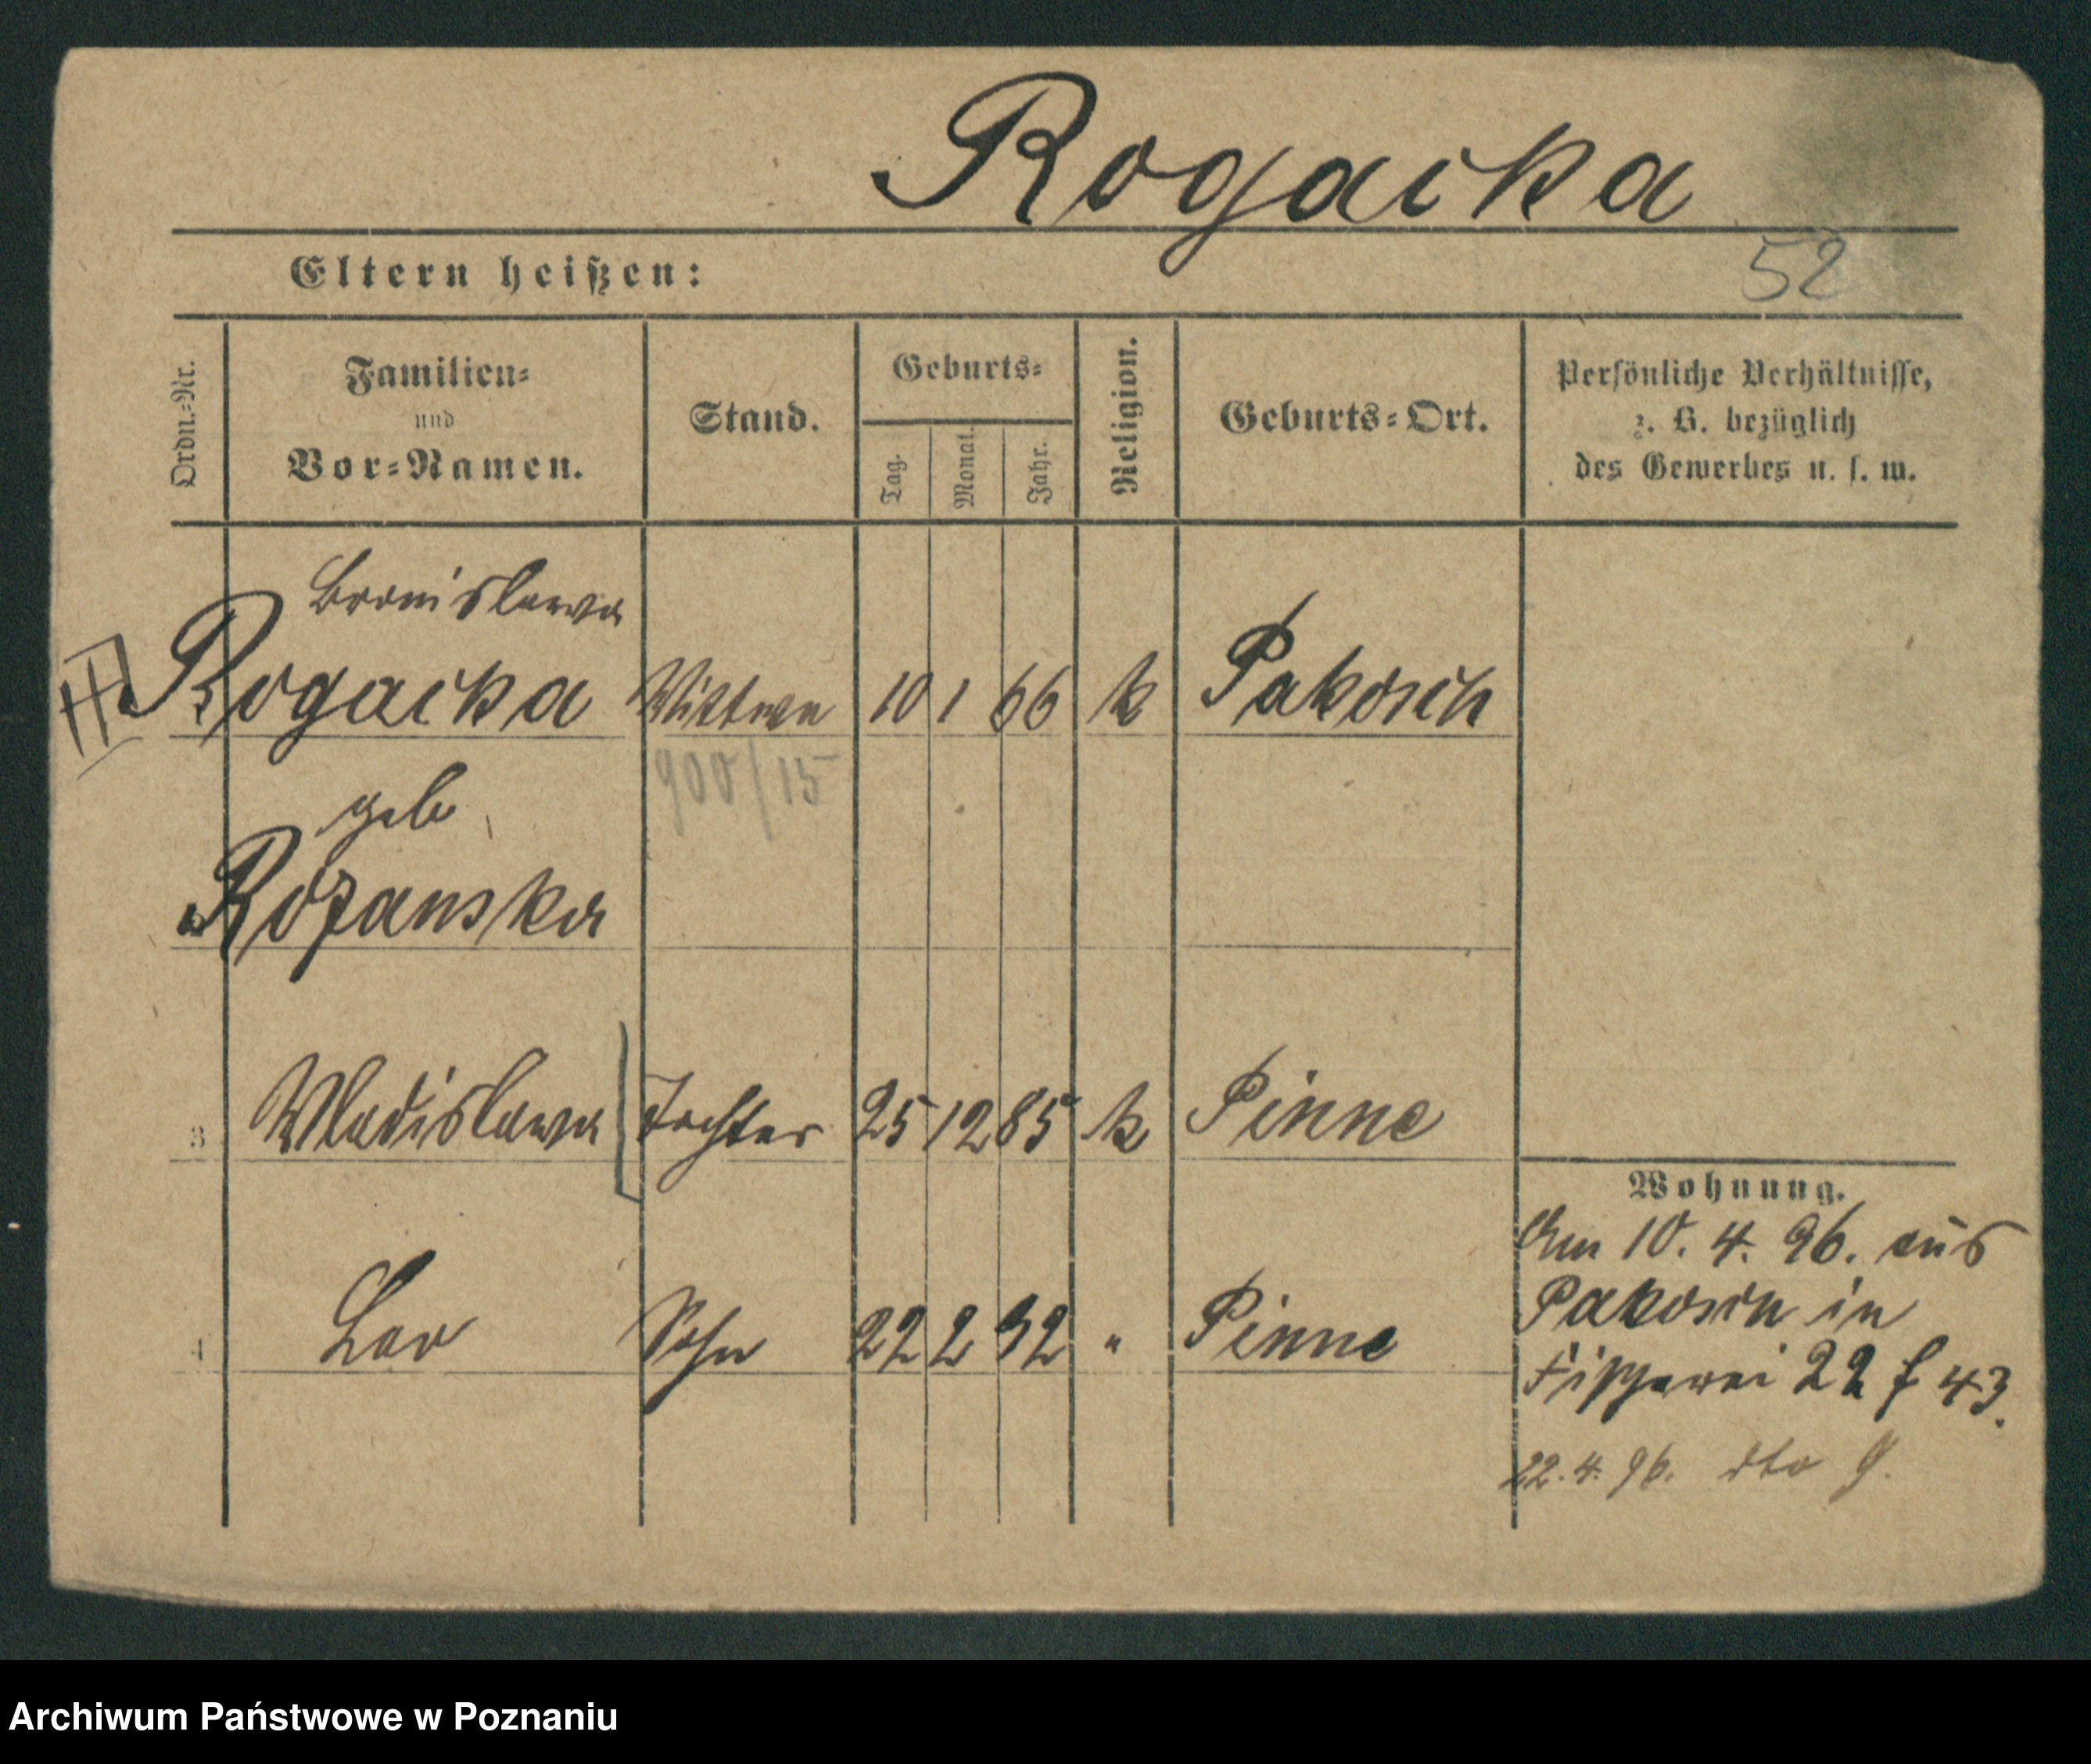 Rogacka
52
Eltern heißen:
Ordn.=Nr.
Familien=
und
Vor=Namen.
Stand.
Geburts=
Tag.
Monat.
Jahr.
Religion.
Geburts=Ort.
Persönliche Verhältnisse,
z. B. bezüglich
des Gewerbes u. s. w.
Bronislawa
Rogacka Wittwe 10 1 66 k Pakosch
900/15
geb
Rozanska
3 Wladislawa Tochter 25 12 85 k Pinne
4 Leo Sohn 22 2 92 " Pinne
Wohnung.
Am 10. 4. 96. aus
Pakosch in
Fischerei 22 f 43.
22. 4. 96. dto 9.
Archiwum Państwowe w Poznaniu